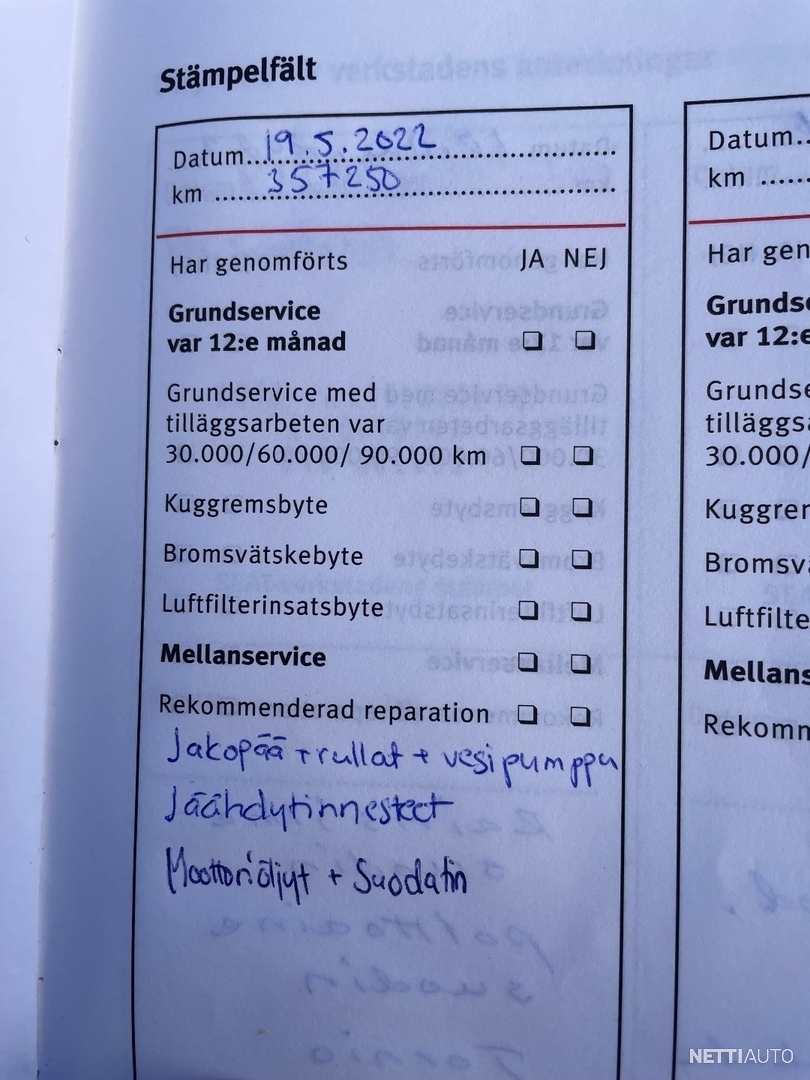 Stämpelfält
Datum...19.5.2022
km ...357250
Har genomförts JA NEJ
Grundservice
var 12:e månad
Grundservice med
tilläggsarbeten var
30.000/60.000/ 90.000 km
Kuggremsbyte
Bromsvätskebyte
Luftfilterinsatsbyte
Mellanservice
Rekommenderad reparation
Jakopää + rullat + vesipumppu
Jäähdytinnesteet
Moottoriöljyt + Suodatin
Datum..
km .....
Har gen
Grunds
var 12:e
Grunds
tilläggs
30.000/
Kuggrer
Bromsv
Luftfilte
Mellans
Rekomm
NETTIAUTO